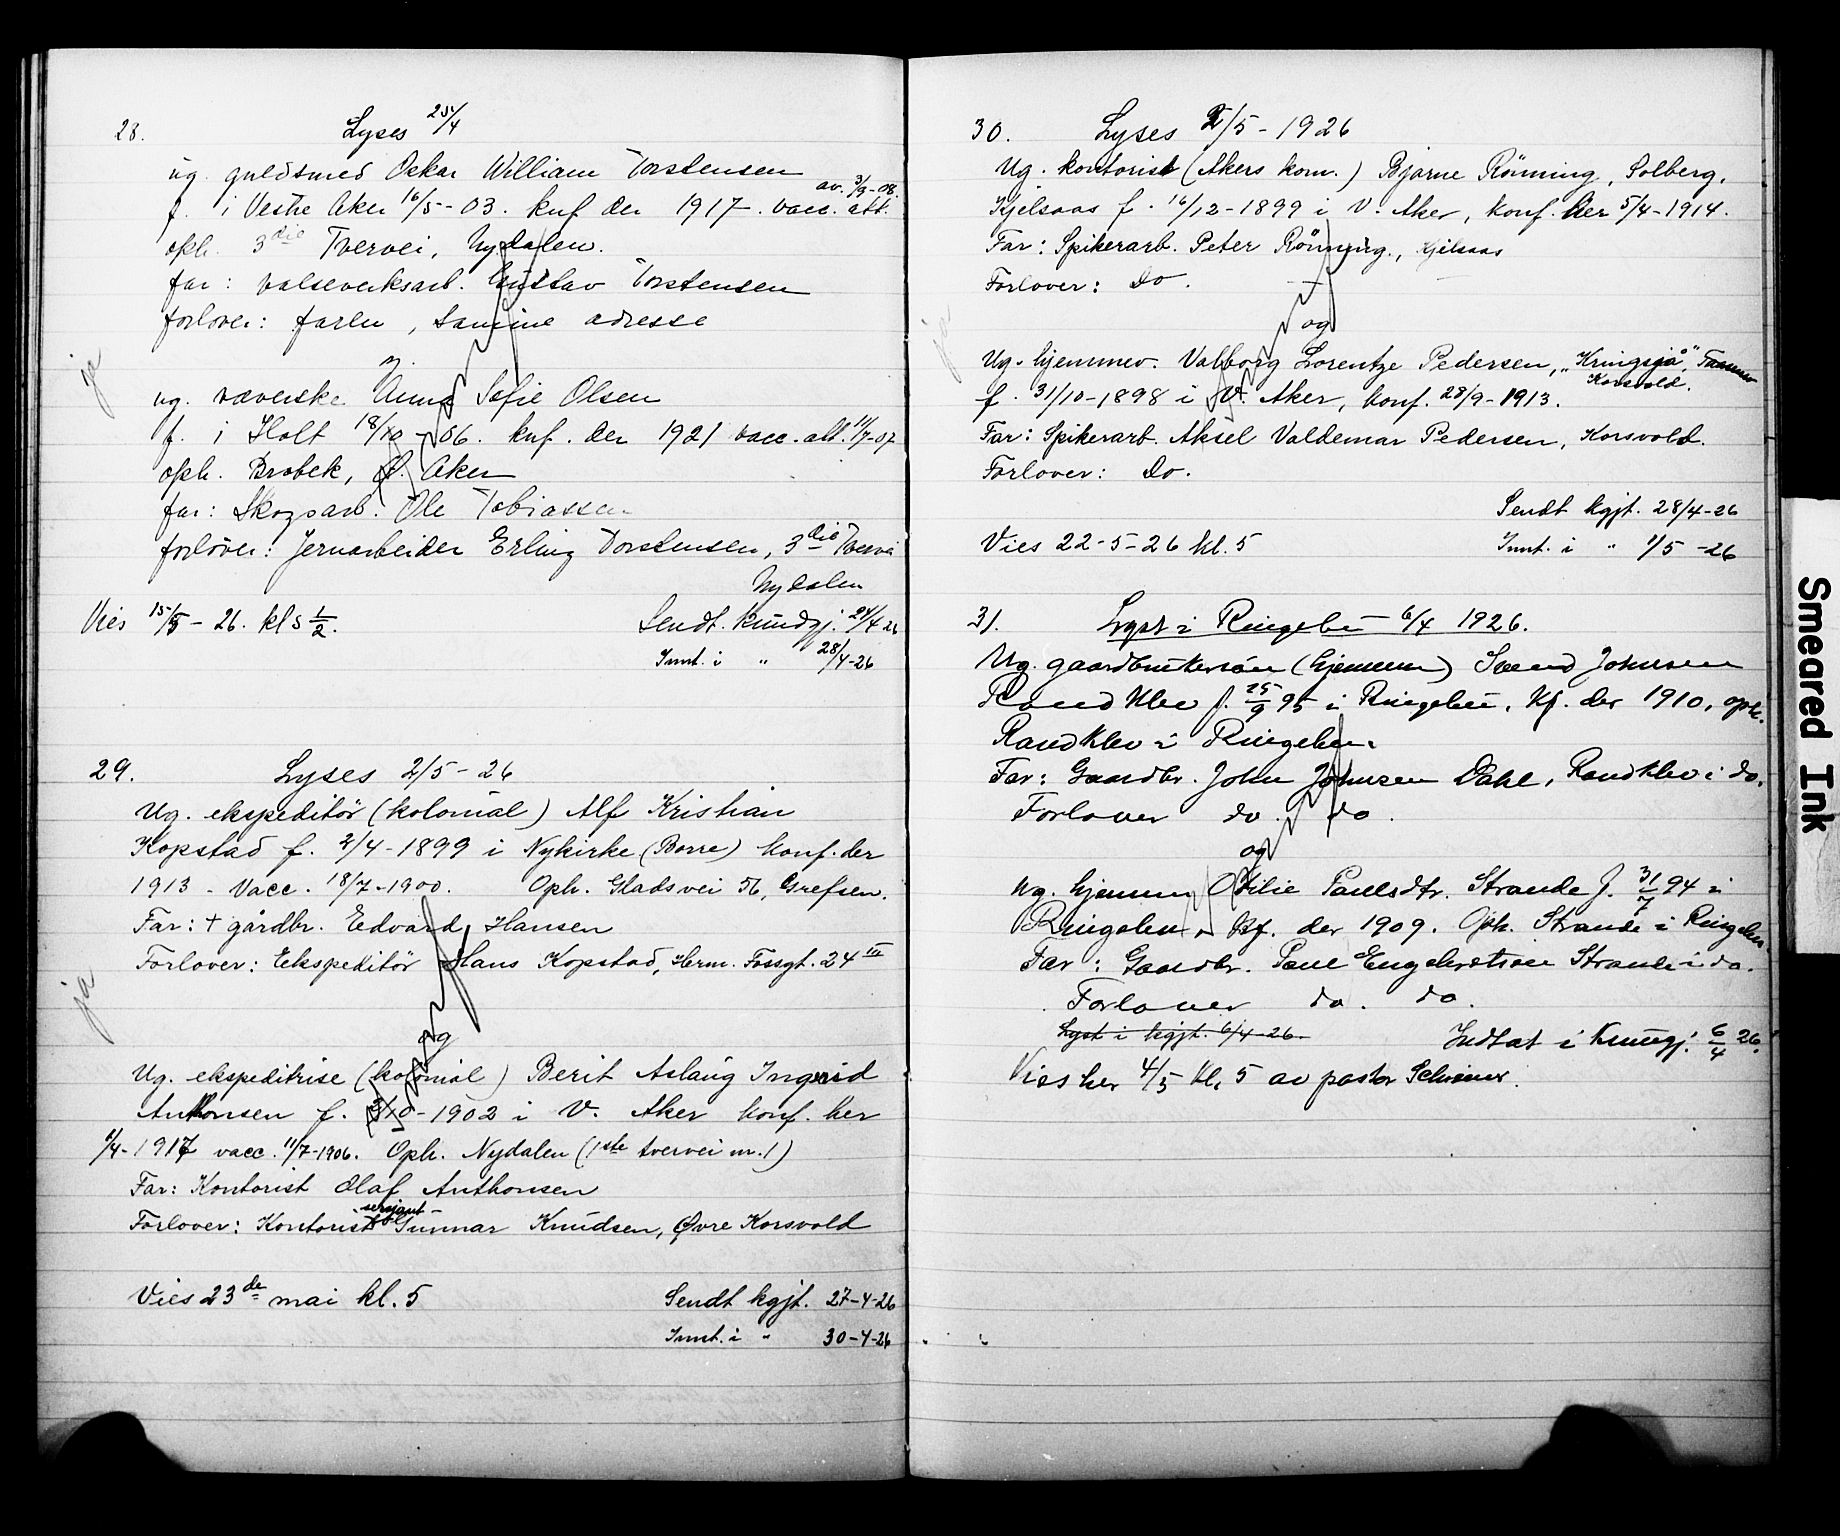 28. Lyses 25/4
ug. guldsmed Oskar William Torstensen
f. i Vestre Aker 16/5-03. knf der 1917. vacc. att. av. 3/9-08
oph. 3die Tvervei, Nydalen.
far: valseverksarb. Gustav Torstensen
forlover: faren, samme adresse
og
ja
ug. væverske Anna Sofie Olsen
f. i Holt 18/10-06. knf. der 1921 vacc. att. 11/7-07
oph. Brobek, Ø. Aker
far: Skogsarb. Ole Tobiassen
forlover: Jernarbeider Erling Torstensen, 3die Tvervei
Nydalen
Vies 15/5-26. kl 5 1/2.
Sendt. kundgj. 24/4 26
Innt. i " 28/4-26
29. Lyses 2/5-26
Ug. ekspeditör (kolonial) Alf Kristian
Kopstad f. 2/4-1899 i Nykirke (Borre) konf. der
1913 - Vacc. 18/7-1900. Oph. Gladsvei 56, Grefsen.
Far: + gårdbr. Edvard Hansen
Forlover: Ekspeditör Hans Kopstad, Herm. Fossgt. 24 III
ja
og
Ug. ekspeditrise (kolonial) Berit Aslaug Ingrid
Anthonsen f. 2/10-1902 i V. Aker konf. her
1/4-1917 vacc. 11/7-1906. Oph. Nydalen (1ste tvervei nr. 1)
Far: Kontorist Olaf Anthonsen
sersjant
Forlover: Kontorist Gunnar Knudsen, Øvre Korsvold
Vies 23de mai kl. 5
Sendt kgjt. 27-4-26
Innt. i " 30-4-26
30. Lyses 2/5-1926
Ug. kontorist (Akers kom.) Bjarne Rönning, Solberg,
Kjelsaas f. 16/12-1899 i V. Aker, konf. her 5/4-1914.
Far: Spikerarb. Peter Rönning, Kjelsaas
Forlover: Do.
og
ja
Ug. hjemmev. Valborg Lorentze Pedersen, "Kringsjå",
Korsvold.
f. 31/10-1898 i V. Aker, konf. 28/9-1913.
Far: Spikerarb. Aksel Valdemar Pedersen, Korsvold.
Forlover: Do.
Sendt kgjt. 28/4-26
Vies 22-5-26 kl. 5
Innt. i " 1/5-26
31. Lyst i Ringebu 6/4 1926.
Ug. gaardbrukersön (hjemmev) Svend Johnsen
Randklev f. 25/9 95 i Ringebu, kf. der 1910, oph.
Randklev i Ringebu.
Far: Gaardbr. John Johnsen Dahl, Randklev i do.
Forlover do. do.
og
ug. hjemmev Otilie Paulsdtr. Strande f. 31/7 94 i
Ringebu. Kf. der 1909. Oph. Strande i Ringebu.
Far: Gaardbr. Paul Engebretsen Strande i do.
Forlover do. do.
Lyst i kgjt. 6/4-26.
Indtat i Kunngj. 6/4 26.
Vies her 4/5 kl. 5 av pastor Schreiner.
Smeared Ink